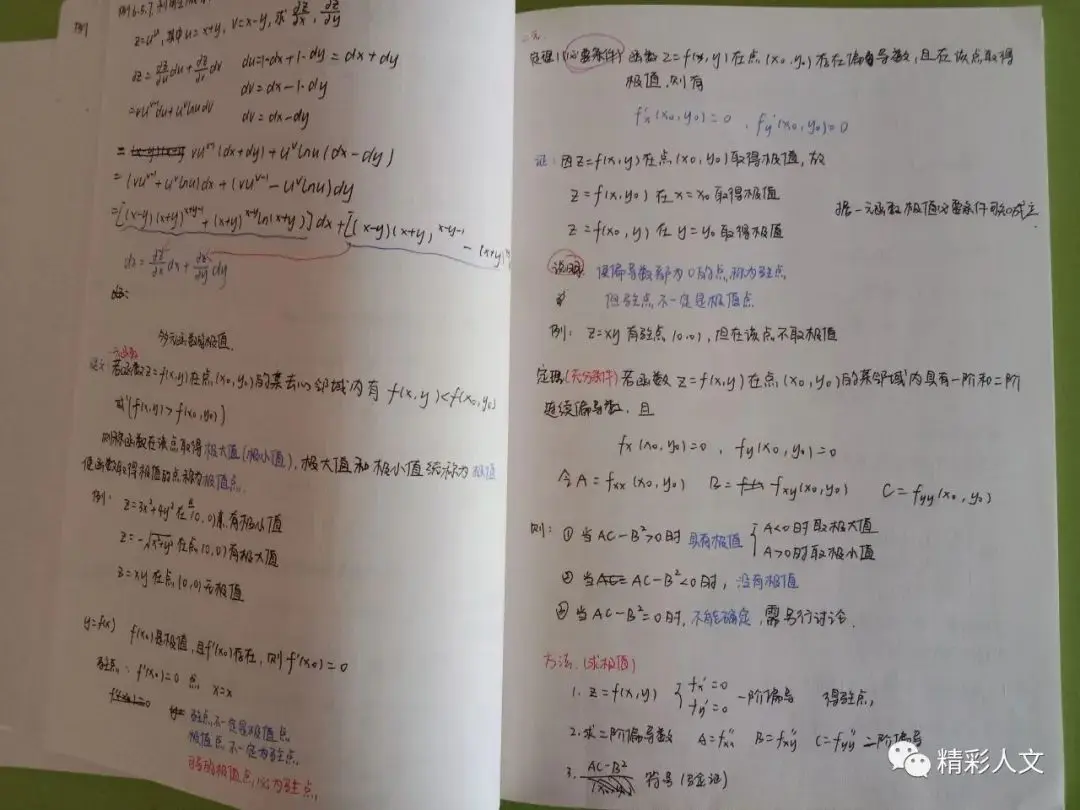 例
例6.5.7.
z=u^v, 其中u=x+y, v=x-y, 求 ∂z/∂x, ∂z/∂y
dz=∂z/∂u du+∂z/∂v dv du=1·dx+1·dy=dx+dy
dv=dx-1·dy
=vu^(v-1)du+u^v lnu dv dv=dx-dy
= vu^(v-1)(dx+dy)+u^v lnu(dx-dy)
=(vu^(v-1)+u^v lnu)dx+(vu^(v-1)-u^v lnu)dy
=[(x-y)(x+y)^(x-y-1)+(x+y)^(x-y)ln(x+y)]dx+[(x-y)(x+y)^(x-y-1)-(x+y)
dz=∂z/∂x dx+∂z/∂y dy
多元函数的极值.
二元函数
定义:若函数z=f(x,y)在点(x0,y0)的某去心邻域内有f(x,y)<f(x0,y0)
或(f(x,y)>f(x0,y0))
则称函数在该点取得极大值(极小值),极大值和极小值统称为极值
使函数取得极值的点,称为极值点.
例: z=3x²+4y²在点(0,0)有极小值
z=-√(x²+y²)在点(0,0)有极大值
z=xy在点(0,0)无极值
y=f(x) f(x0)是极值,且f'(x0)存在,则f'(x0)=0
驻点: f'(x0)=0 点 x=x
驻点,不一定是极值点.
极值点,不一定为驻点.
可导的极值点,必为驻点.
二元.
定理1(必要条件) 函数z=f(x,y)在点(x0,y0)存在偏导数,且在该点取得
极值,则有
f'x(x0,y0)=0 , f'y(x0,y0)=0
证:因z=f(x,y)在点(x0,y0)取得极值,故
z=f(x,y0)在x=x0取得极值
z=f(x0,y)在y=y0取得极值
据一元函数极值必要条件可知成立
说明 使偏导数都为0的点,称为驻点
但驻点不一定是极值点
例: z=xy有驻点(0,0),但在该点不取极值
定理(充分条件)若函数z=f(x,y)在点(x0,y0)的某邻域内具有一阶和二阶
连续偏导数,且
fx(x0,y0)=0, fy(x0,y0)=0
令A=fxx(x0,y0) B=fxy(x0,y0) C=fyy(x0,y0)
则:①当AC-B²>0时 具有极值 { A<0时取极大值
A>0时取极小值
②当AC-B²<0时,没有极值
③当AC-B²=0时,不能确定,需另行讨论.
方法.(求极值)
1. z=f(x,y) { fx'=0
fy'=0 一阶偏导 得驻点,
2.求二阶偏导数 A=f''xx B=f''xy C=f''yy 二阶偏导
3. AC-B² 符号(验证)
精彩人文